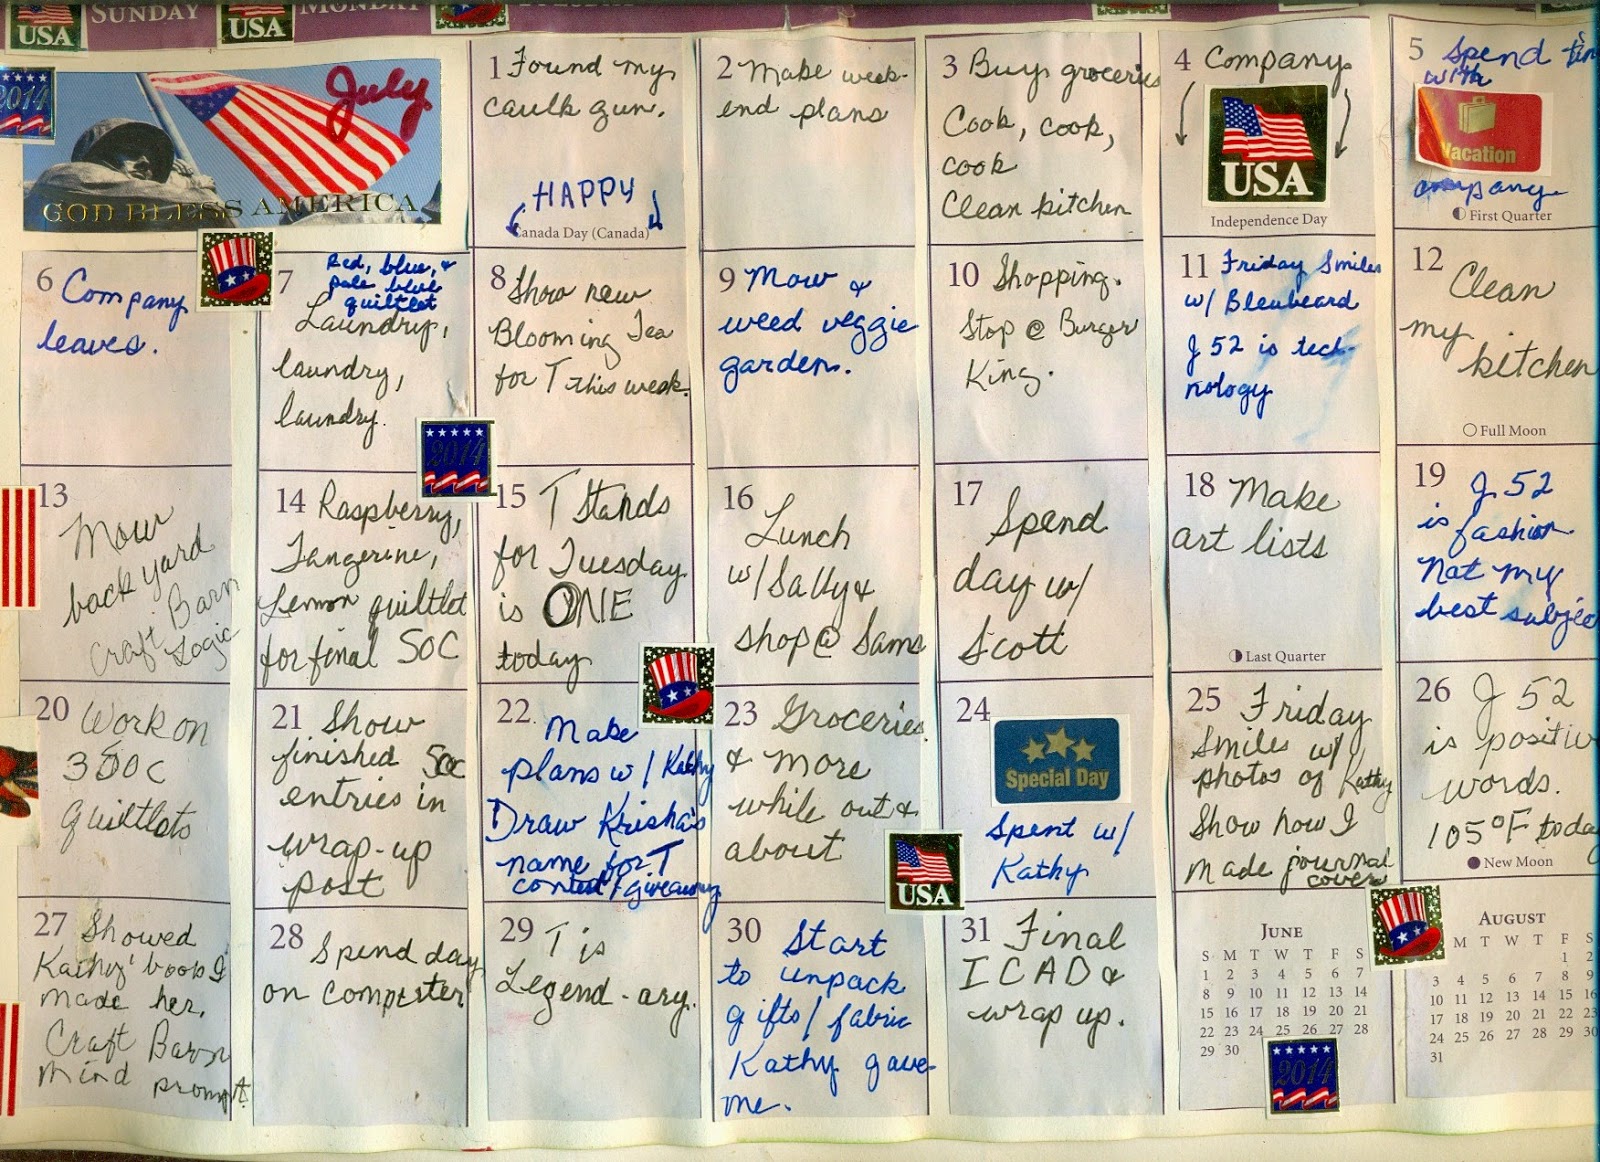 USA
SUNDAY
USA
MONDAY
TUESDAY
2014
July
GOD BLESS AMERICA
1 Found my
caulk gun.
HAPPY
Canada Day (Canada)
2 Make week-
end plans
3 Buy groceries
Cook, cook,
cook
Clean kitchen
4 Company
USA
Independence Day
5 Spend
with
Vacation
company
First Quarter
6 Company
leaves.
7 Red, blue, &
pale blue
quiltlet
Laundry,
laundry,
laundry.
8 Show new
Blooming Tea
for T this week.
9 Mow &
weed veggie
garden.
10 Shopping.
Stop @ Burger
King.
11 Friday Smiles
w/ Bleubeard
J 52 is tech-
nology
12
Clean
my
kitchen
Full Moon
2014
13
Mow
back yard
Craft Barn
Logic
14 Raspberry,
Tangerine,
Lemon quiltlet
for final SOC
15 T Stands
for Tuesday
is ONE
today
16
Lunch
w/ Sally &
shop @ Sams
17
Spend
day w/
Scott
18 Make
art lists
Last Quarter
19 J 52
is fashion
Not my
best
20 Work on
3 SOC
quiltlets
21 Show
finished SOC
entries in
wrap-up
post
22 Make
plans w/ Kathy
Draw Krisha's
name for T
contest/giveaway
23 Groceries
& more
while out &
about
24
Special Day
Spent w/
Kathy
USA
25 Friday
Smiles w/
photos of Kathy
Show how I
made journal
cover
26 J 52
is positive
words.
105°F today
New Moon
27 Showed
Kathy' book I
made her.
Craft Barn
mind prompt.
28 Spend day
on computer
29 T is
Legend-ary.
30 Start
to unpack
gifts/fabric
Kathy gave
me.
31 Final
ICAD &
wrap up.
JUNE
S M T W T F S
1 2 3 4 5 6 7
8 9 10 11 12 13 14
15 16 17 18 19 20 21
22 23 24 25 26 27 28
29 30
2014
AUGUST
M T W T F S
1 2
3 4 5 6 7 8 9
10 11 12 13 14 15 16
17 18 19 20 21 22 23
24 25 26 27 28 29 30
31